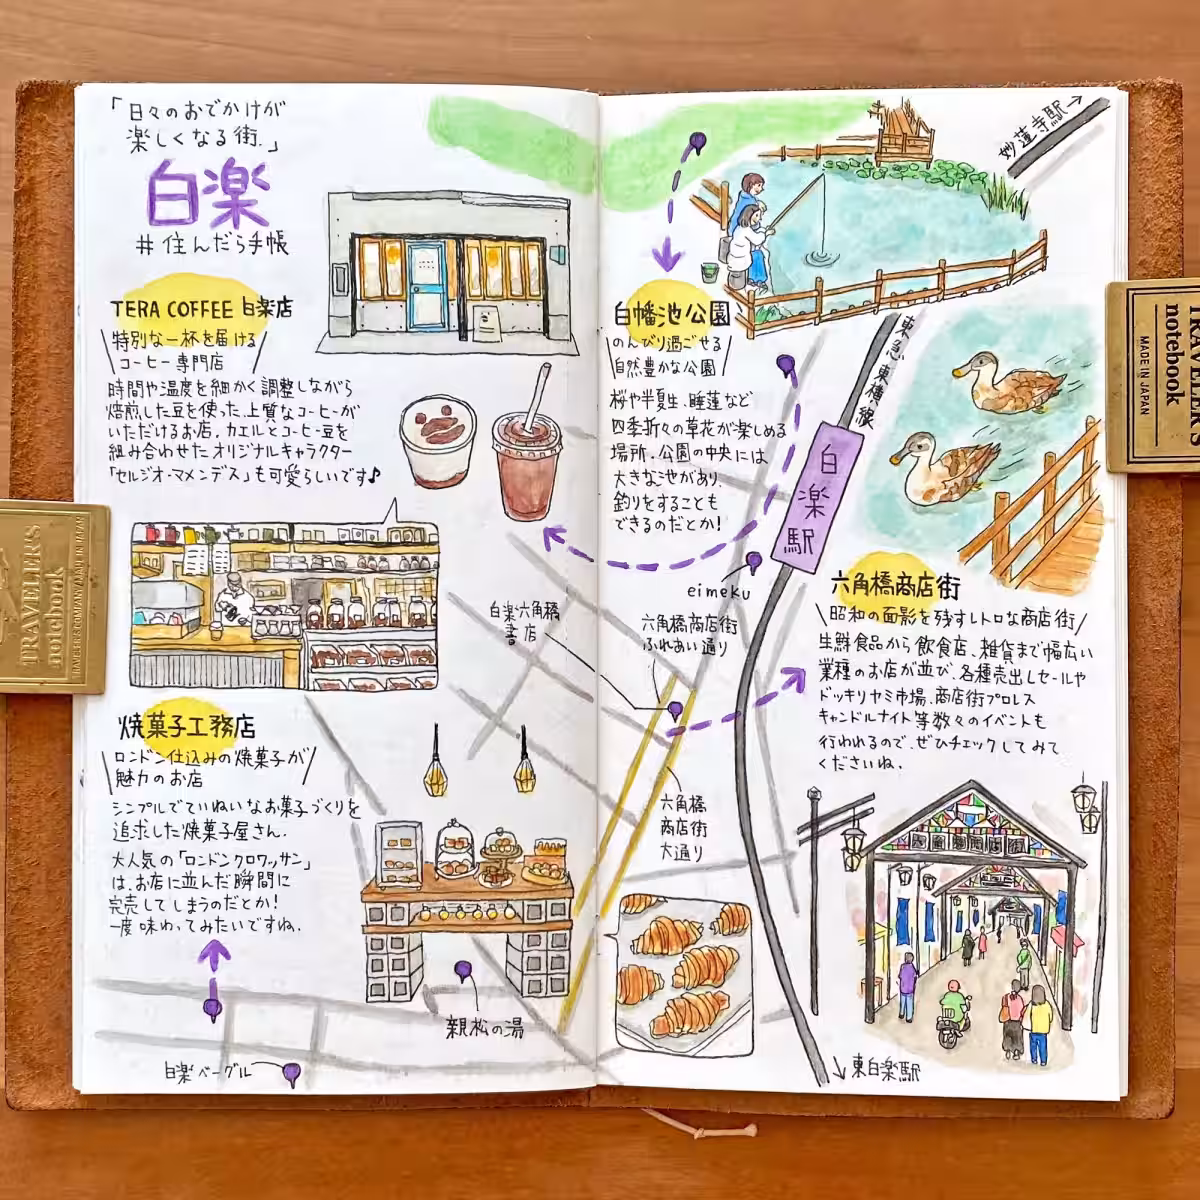 「日々のおでかけが
楽しくなる街。」
白楽
#住んだら手帳
TERA COFFEE 白楽店
特別な一杯を届ける
コーヒー専門店
時間や温度を細かく調整しながら
焙煎した豆を使った、上質なコーヒーが
いただけるお店。カエルとコーヒー豆を
組み合わせたオリジナルキャラクター
「セルジオ・マメンデス」も可愛らしいです♪
焼菓子工務店
ロンドン仕込みの焼菓子が
魅力のお店
シンプルでていねいなお菓子づくりを
追求した焼菓子屋さん。
大人気の「ロンドンクロワッサン」
は、お店に並んだ瞬間に
完売してしまうのだとか!
一度味わってみたいですね。
親松の湯
白楽ベーグル
妙蓮寺駅
白幡池公園
のんびり過ごせる
自然豊かな公園
桜や半夏生、睡蓮など
四季折々の草花が楽しめる
場所。公園の中央には
大きな池があり、
釣りをすることも
できるのだとか!
東急東横線
白楽駅
eimeku
白楽六角橋
書店
六角橋商店街
ふれあい通り
六角橋
商店街
大通り
六角橋商店街
昭和の面影を残すレトロな商店街
生鮮食品から飲食店、雑貨まで幅広い
業種のお店が並び、各種売出しセールや
ドッキリヤミ市場、商店街プロレス
キャンドルナイト等数々のイベントも
行われるので、ぜひチェックしてみて
くださいね。
東白楽駅
TRAVELER'S
notebook
TRAVELER'S
notebook
MADE IN JAPAN